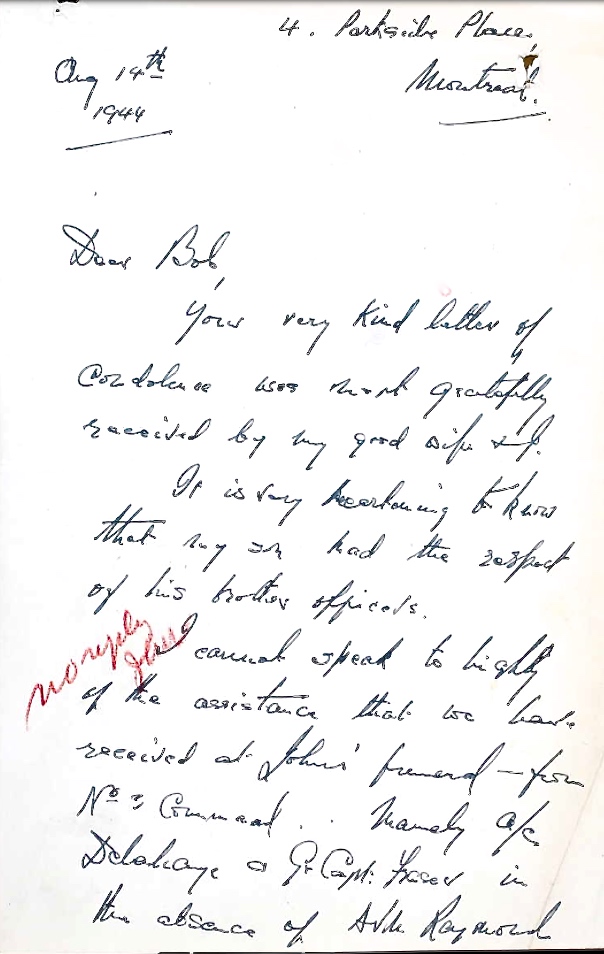 4. Parkside Place,
Montreal.
Aug 14th
1944
Dear Bob,
Your very kind letter of
Condolence was most gratefully
received by my good wife & I.
It is very heartening to know
that my son had the respect
of his brother officers.
no reply
I cannot speak to highly
of the assistance that we have
received at John's funeral – from
No 3 Command . . Namely A/C.
Delahaye & Gr Capt. Fraser in
the absence of AVM Raymond